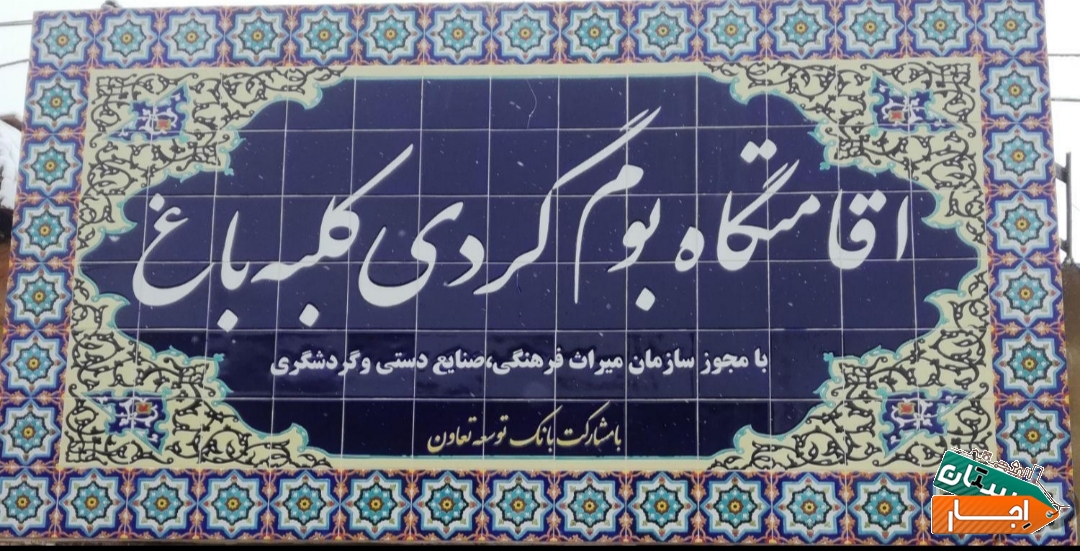 اقامتگاه بوم گردی کلبه باغ
با مجوز سازمان میراث فرهنگی،صنایع دستی وگردشگری
بامشارکت بانک توسعه تعاون
اجار